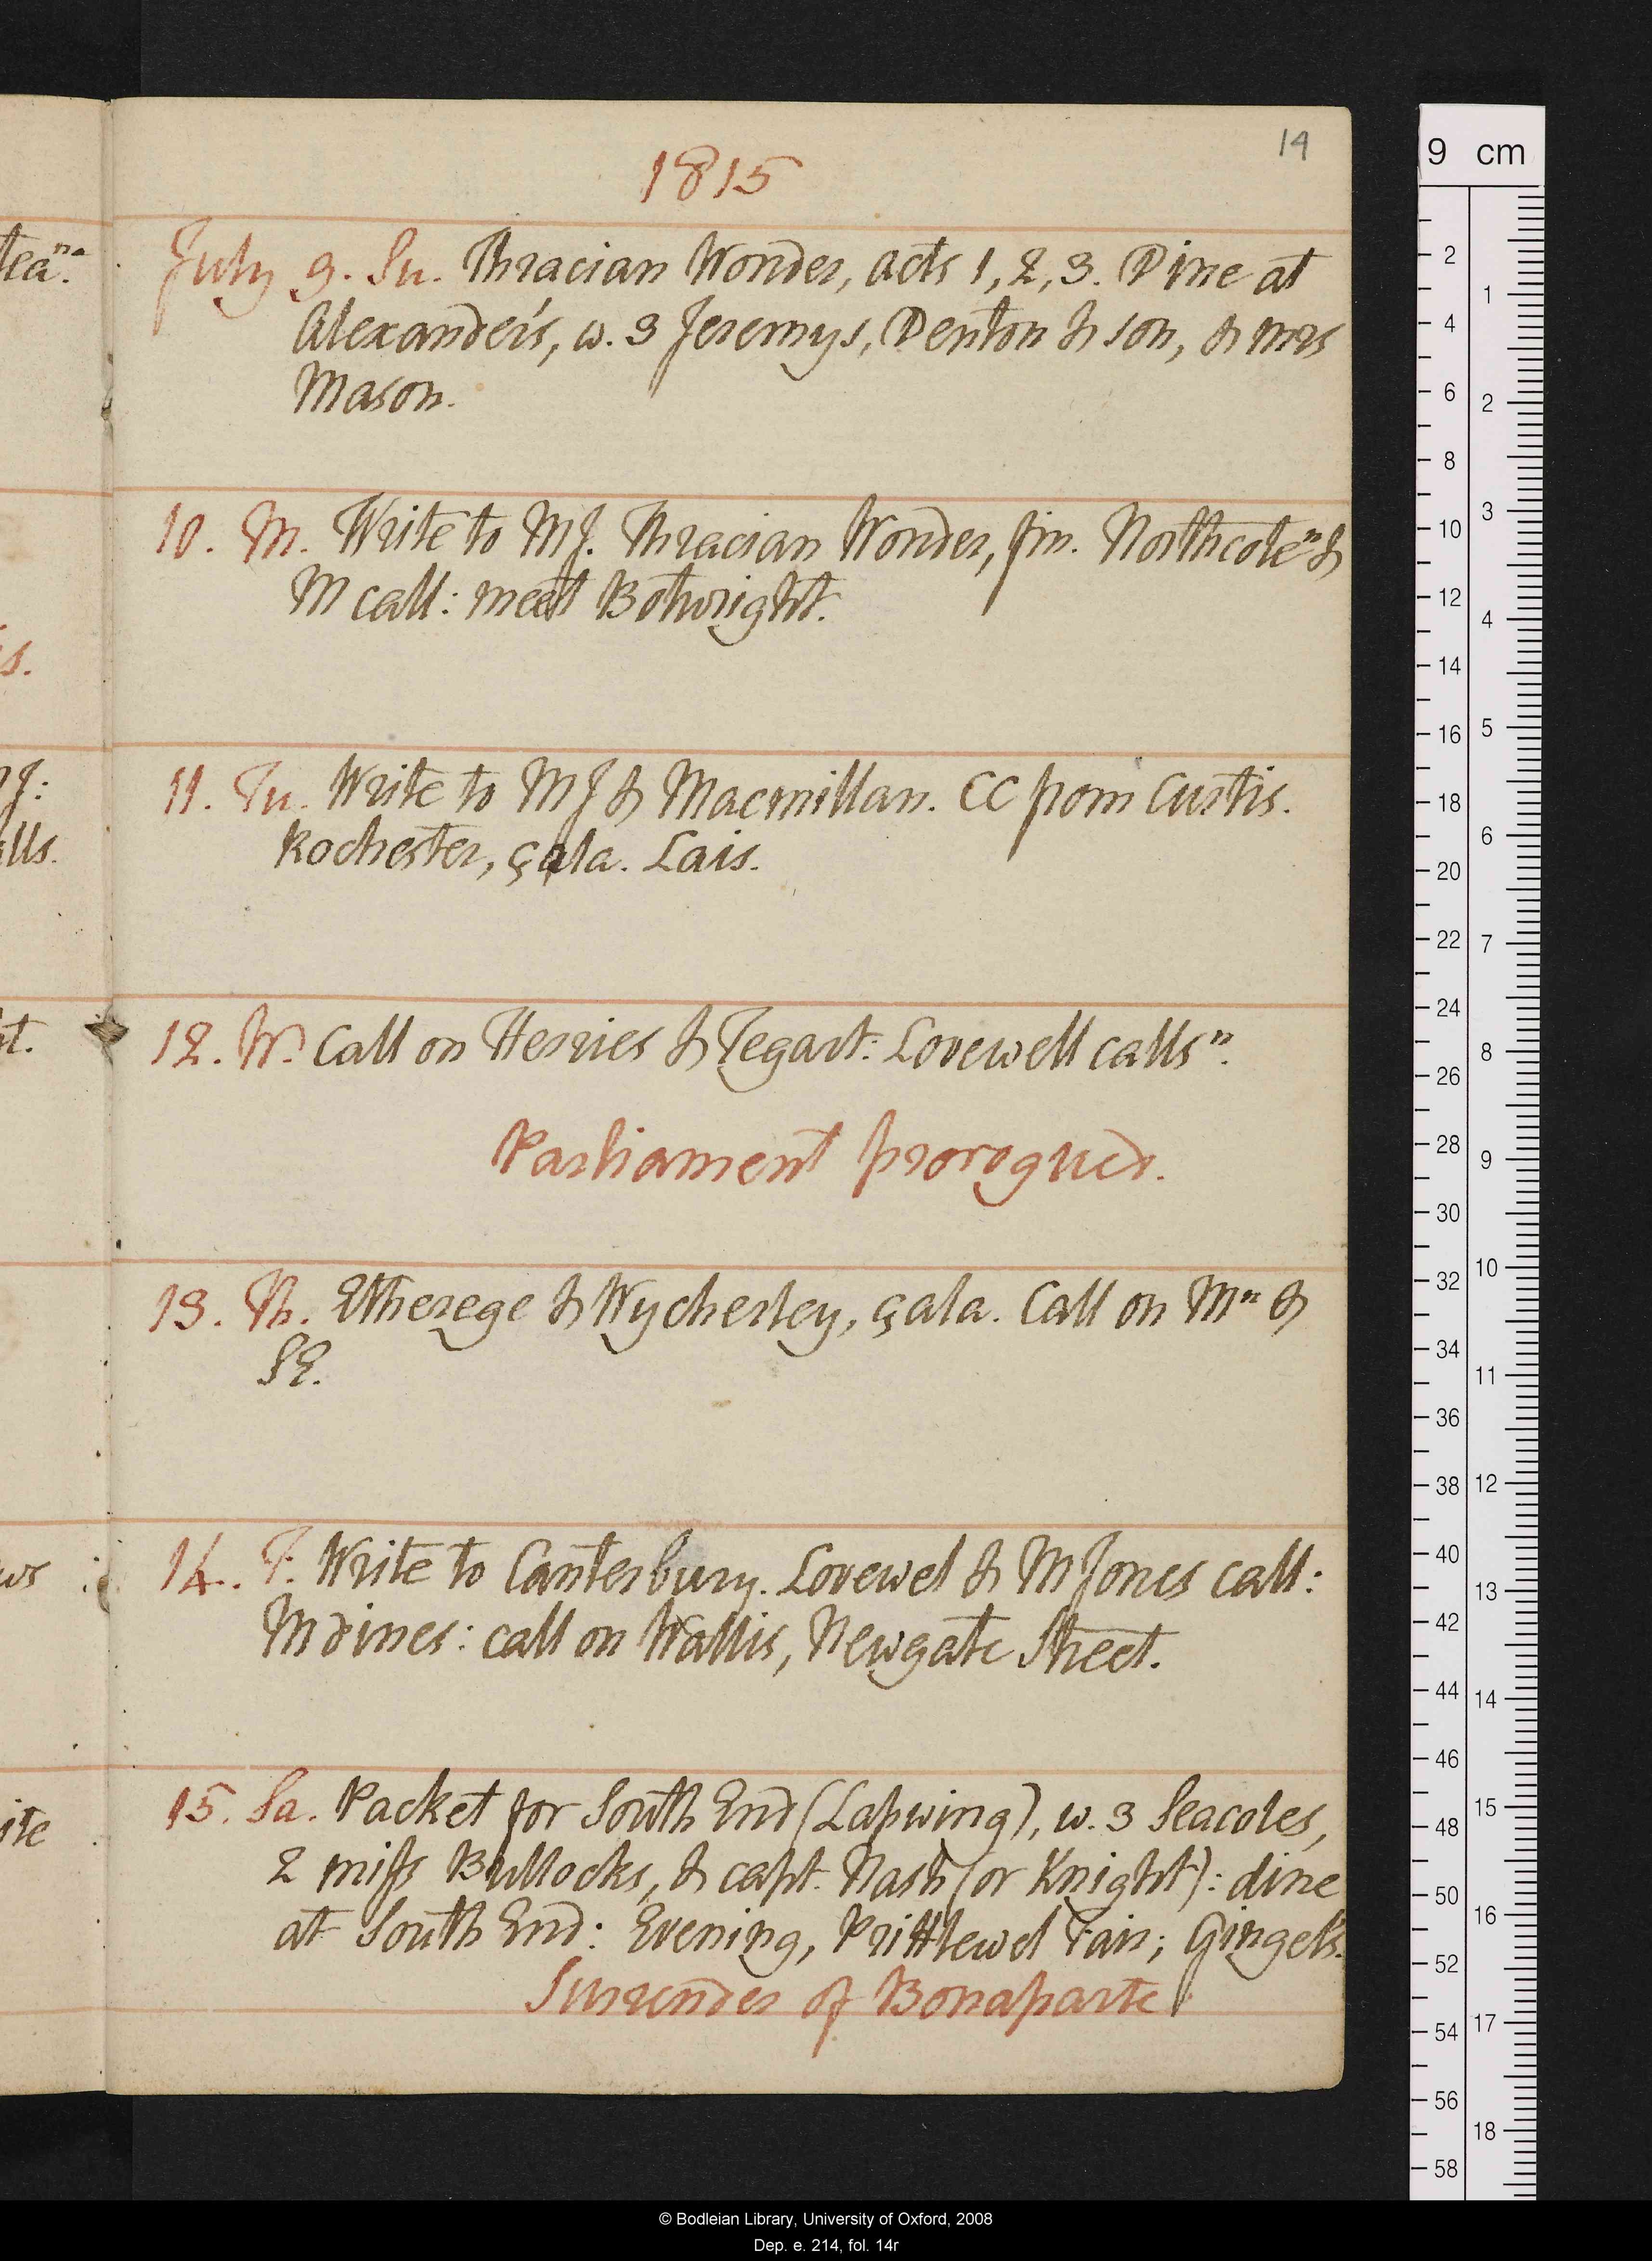 14
1815
July 9. Su. Thracian Wonder, acts 1, 2, 3. Dine at
Alexander's, w. 3 Jeremys, Denton & son, & mrs
Mason.
10. M. Write to MJ. Thracian Wonder, fin. Northcote" &
M call: meet Botwright.
11. Tu. Write to MJ & Macmillan. CC from Curtis.
Rochester, çala. Lais.
12. W. Call on Herries & Tegart: Lovewell calls".
Parliament prorogued.
13. Th. Etherege & Wycherley, çala. Call on M" &
SE.
14. F. Write to Canterbury. Lovewel & M Jones call:
M dines: call on Wallis, Newgate Street.
15. Sa. Packet for South End (Lapwing), w. 3 Seacoles,
2 miss Bullocks, & capt. Nash (or Knight): dine
at South End: Evening, Prittlewel Fair; Gingel's.
Surrender of Bonaparte
9 cm
2
4
6
8
10
12
14
16
18
20
22
24
26
28
30
32
34
36
38
40
42
44
46
48
50
52
54
56
58
1
2
3
4
5
6
7
8
9
10
11
12
13
14
15
16
17
18
© Bodleian Library, University of Oxford, 2008
Dep. e. 214, fol. 14r